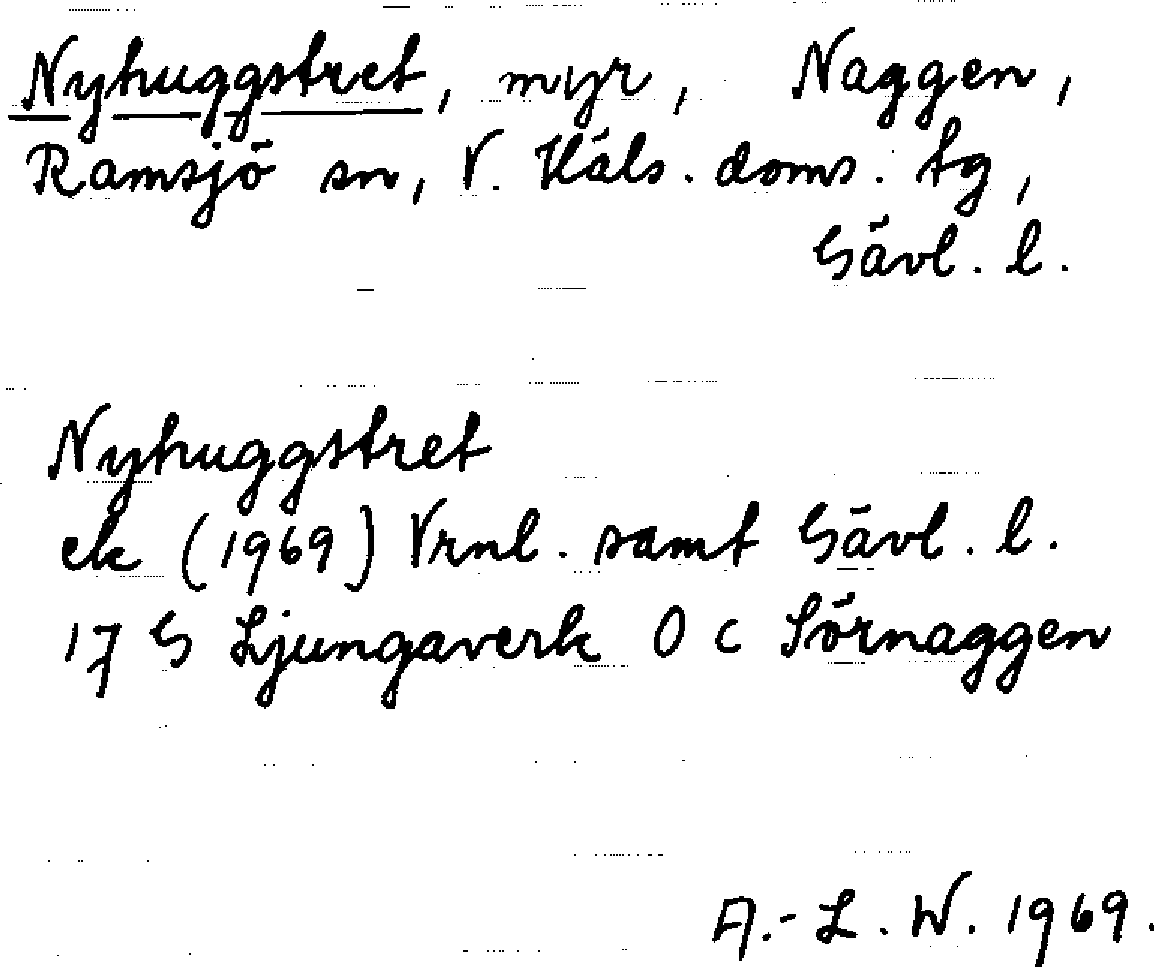 Nyhuggstret, myr, Naggen,
Ramsjö sn, V. Häls. doms. tg,
Gävl. l.
Nyhuggstret
ek (1969) Vrnl. samt Gävl. l.
17 G Ljungaverk 0 c Sörnaggen
A.-L. W. 1969.